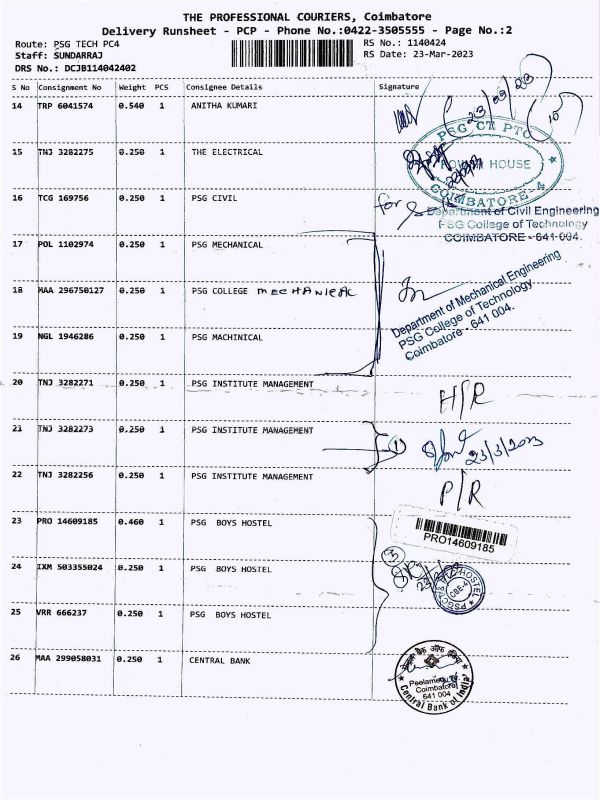 THE PROFESSIONAL COURIERS, Coimbatore
Delivery Runsheet - PCP - Phone No.:0422-3505555 - Page No.:2
Route: PSG TECH PC4
RS No.: 1140424
Staff: SUNDARRAJ
RS Date: 23-Mar-2023
DRS No.: DCJB114042402
S No Consignment No Weight PCS Consignee Details Signature
14 TRP 6041574 0.540 1 ANITHA KUMARI
PSG CT PTC
15 TNJ 3282275 0.250 1 THE ELECTRICAL
POWER HOUSE
COIMBATORE-4
16 TCG 169756 0.250 1 PSG CIVIL
for
Department of Civil Engineering
PSG College of Technology
COIMBATORE - 641-004.
17 POL 1102974 0.250 1 PSG MECHANICAL
18 MAA 296750127 0.250 1 PSG COLLEGE MECHANICAL
Department of Mechanical Engineering
PSG College of Technology
Coimbatore - 641 004.
19 NGL 1946286 0.250 1 PSG MACHINICAL
20 TNJ 3282271 0.250 1 PSG INSTITUTE MANAGEMENT
H/R
21 TNJ 3282273 0.250 1 PSG INSTITUTE MANAGEMENT
1
23/3/2023
22 TNJ 3282256 0.250 1 PSG INSTITUTE MANAGEMENT
P/R
23 PRO 14609185 0.460 1 PSG BOYS HOSTEL
PRO14609185
24 IXM 503355024 0.250 1 PSG BOYS HOSTEL
3
HOSTEL
CBE-4
25 VRR 666237 0.250 1 PSG BOYS HOSTEL
26 MAA 299058031 0.250 1 CENTRAL BANK
सेन्ट्रल बैंक ऑफ इंडिया
Peelamedu Br.
Coimbatore
641 004
Central Bank of India